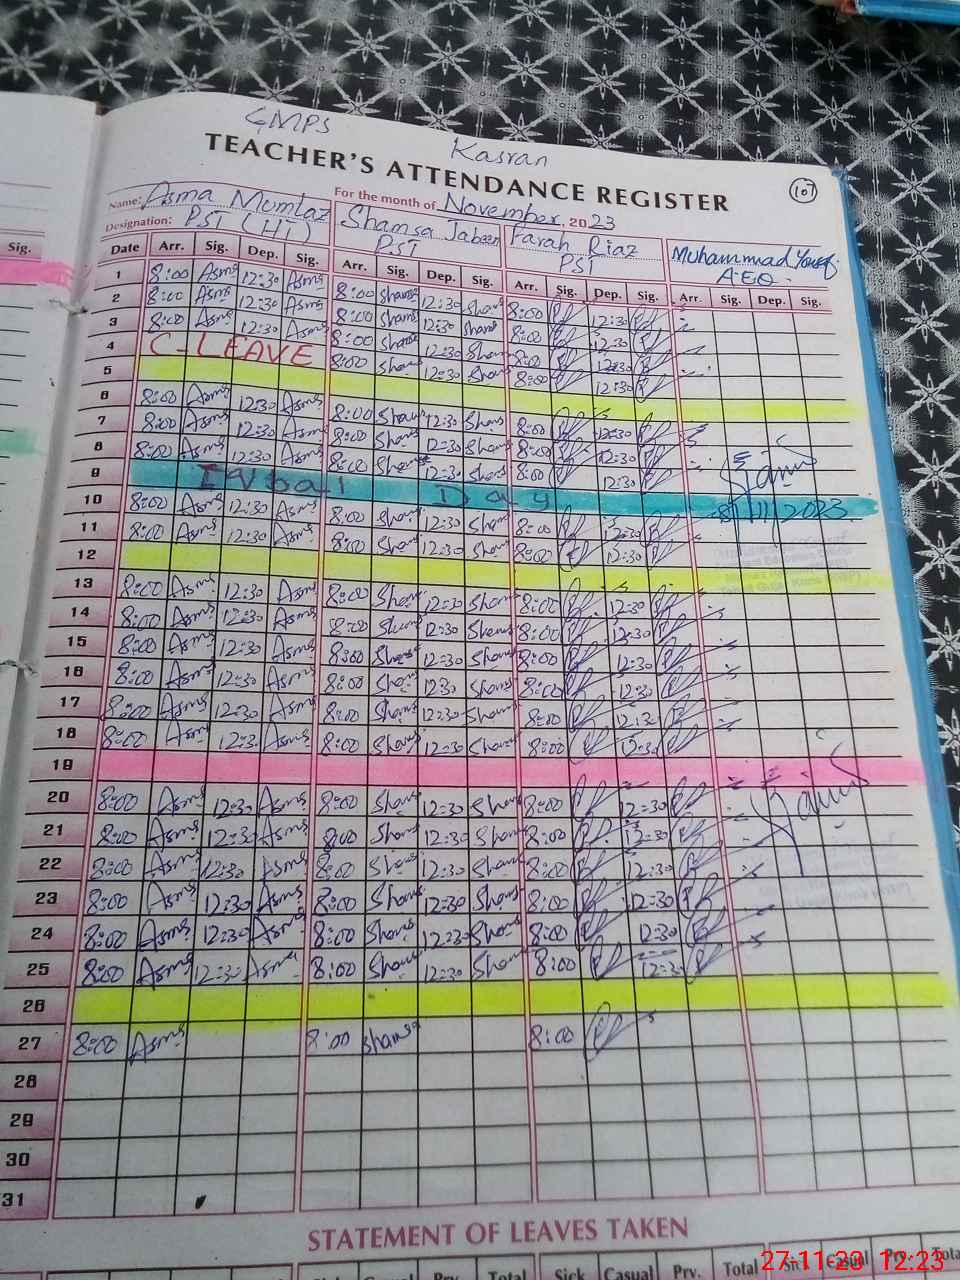 GMPS
Kasran
TEACHER'S ATTENDANCE REGISTER
107
Name: Asma Mumtaz For the month of November, 2023
Designation: PST (HT) Shamsa Jabeen PST Farah Riaz PST Muhammad Yousaf A.E.O.
Sig.
Date Arr. Sig. Dep. Sig. Arr. Sig. Dep. Sig. Arr. Sig. Dep. Sig. Arr. Sig. Dep. Sig.
1 8:00 Asma 12:30 Asma 8:00 Shams 12:30 Shams 8:00 12:30
2 8:00 Asma 12:30 Asma 8:00 Shams 12:30 Shams 8:00 12:30
3 8:00 Asma 12:30 Asma 8:00 Shams 12:30 Shams 8:00 12:30
4 C-LEAVE 8:00 Sham 12:30 Sham 8:00 12:30
5
6 8:00 Asma 12:30 Asma 8:00 Sham 12:30 Shams 8:00 12:30
7 8:00 Asma 12:30 Asma 8:00 Shams 12:30 Shams 8:00 12:30
8 8:00 Asma 12:30 Asma 8:00 Shams 12:30 Shams 8:00 12:30
9 Iqbal Day
10 8:00 Asma 12:30 Asma 8:00 Sham 12:30 Sham 8:00 12:30 8/11/2023
11 8:00 Asma 12:30 Asma 8:00 Sham 12:30 Sham 8:00 12:30
12
13 8:00 Asma 12:30 Asma 8:00 Sham 12:30 Sham 8:00 12:30
14 8:00 Asma 12:30 Asma 8:00 Sham 12:30 Shams 8:00 12:30
15 8:00 Asma 12:30 Asma 8:00 Shams 12:30 Shams 8:00 12:30
16 8:00 Asma 12:30 Asma 8:00 Shams 12:30 Shams 8:00 12:30
17 8:00 Asma 12:30 Asma 8:00 Shams 12:30 Shams 8:00
18 8:00 Asma 12:30 Asma 8:00 Shams 12:30 Shams 8:00 12:30
19
20 8:00 Asma 12:30 Asma 8:00 Shams 12:30 Shams 8:00 12:30
21 8:00 Asma 12:30 Asma 8:00 Shams 12:30 Shams 8:00 12:30
22 8:00 Asma 12:30 Asma 8:00 Shams 12:30 Shams 8:00 12:30
23 8:00 Asma 12:30 Asma 8:00 Shams 12:30 Shams 8:00 12:30
24 8:00 Asma 12:30 Asma 8:00 Shams 12:30 Shams 8:00 12:30
25 8:00 Asma 12:30 Asma 8:00 Sham 12:30 Sham 8:00 12:30
26
27 8:00 Asma 8:00 Shamsa 8:00
28
29
30
31
STATEMENT OF LEAVES TAKEN
Total Sick Casual Prv. Total Sick Casual Prv.
27-11-23 12:23